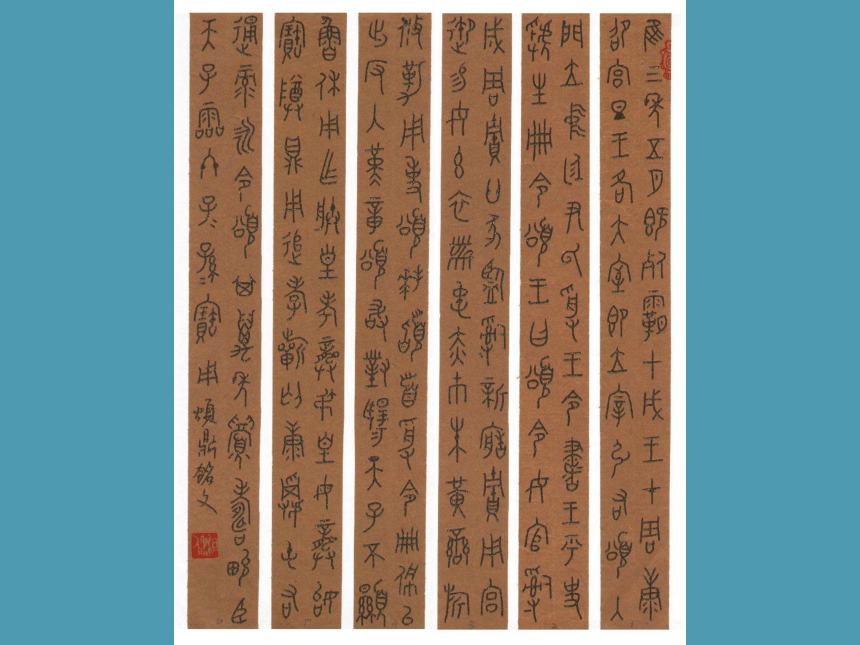 隹三年五月既死霸甲戌王才周康
卲宮旦王各大室即立宰弘右頌入
門立中廷尹氏受王令書王乎史
虢生冊令頌王曰頌令女官𤔲
成周貯廿家監𤔲新寤貯用宮
御易女玄衣黹屯赤巿朱黃鑾旂
攸勒用事頌拜稽首受令冊佩以
出反入堇章頌敢對揚天子不顯
魯休用乍朕皇考龏弔皇母龏姒
寶尊鼎用追孝祈匄康𩛥屯右
通彔永令頌其萬年眉壽畯臣
天子霝冬子=孫=寶用
頌鼎銘文